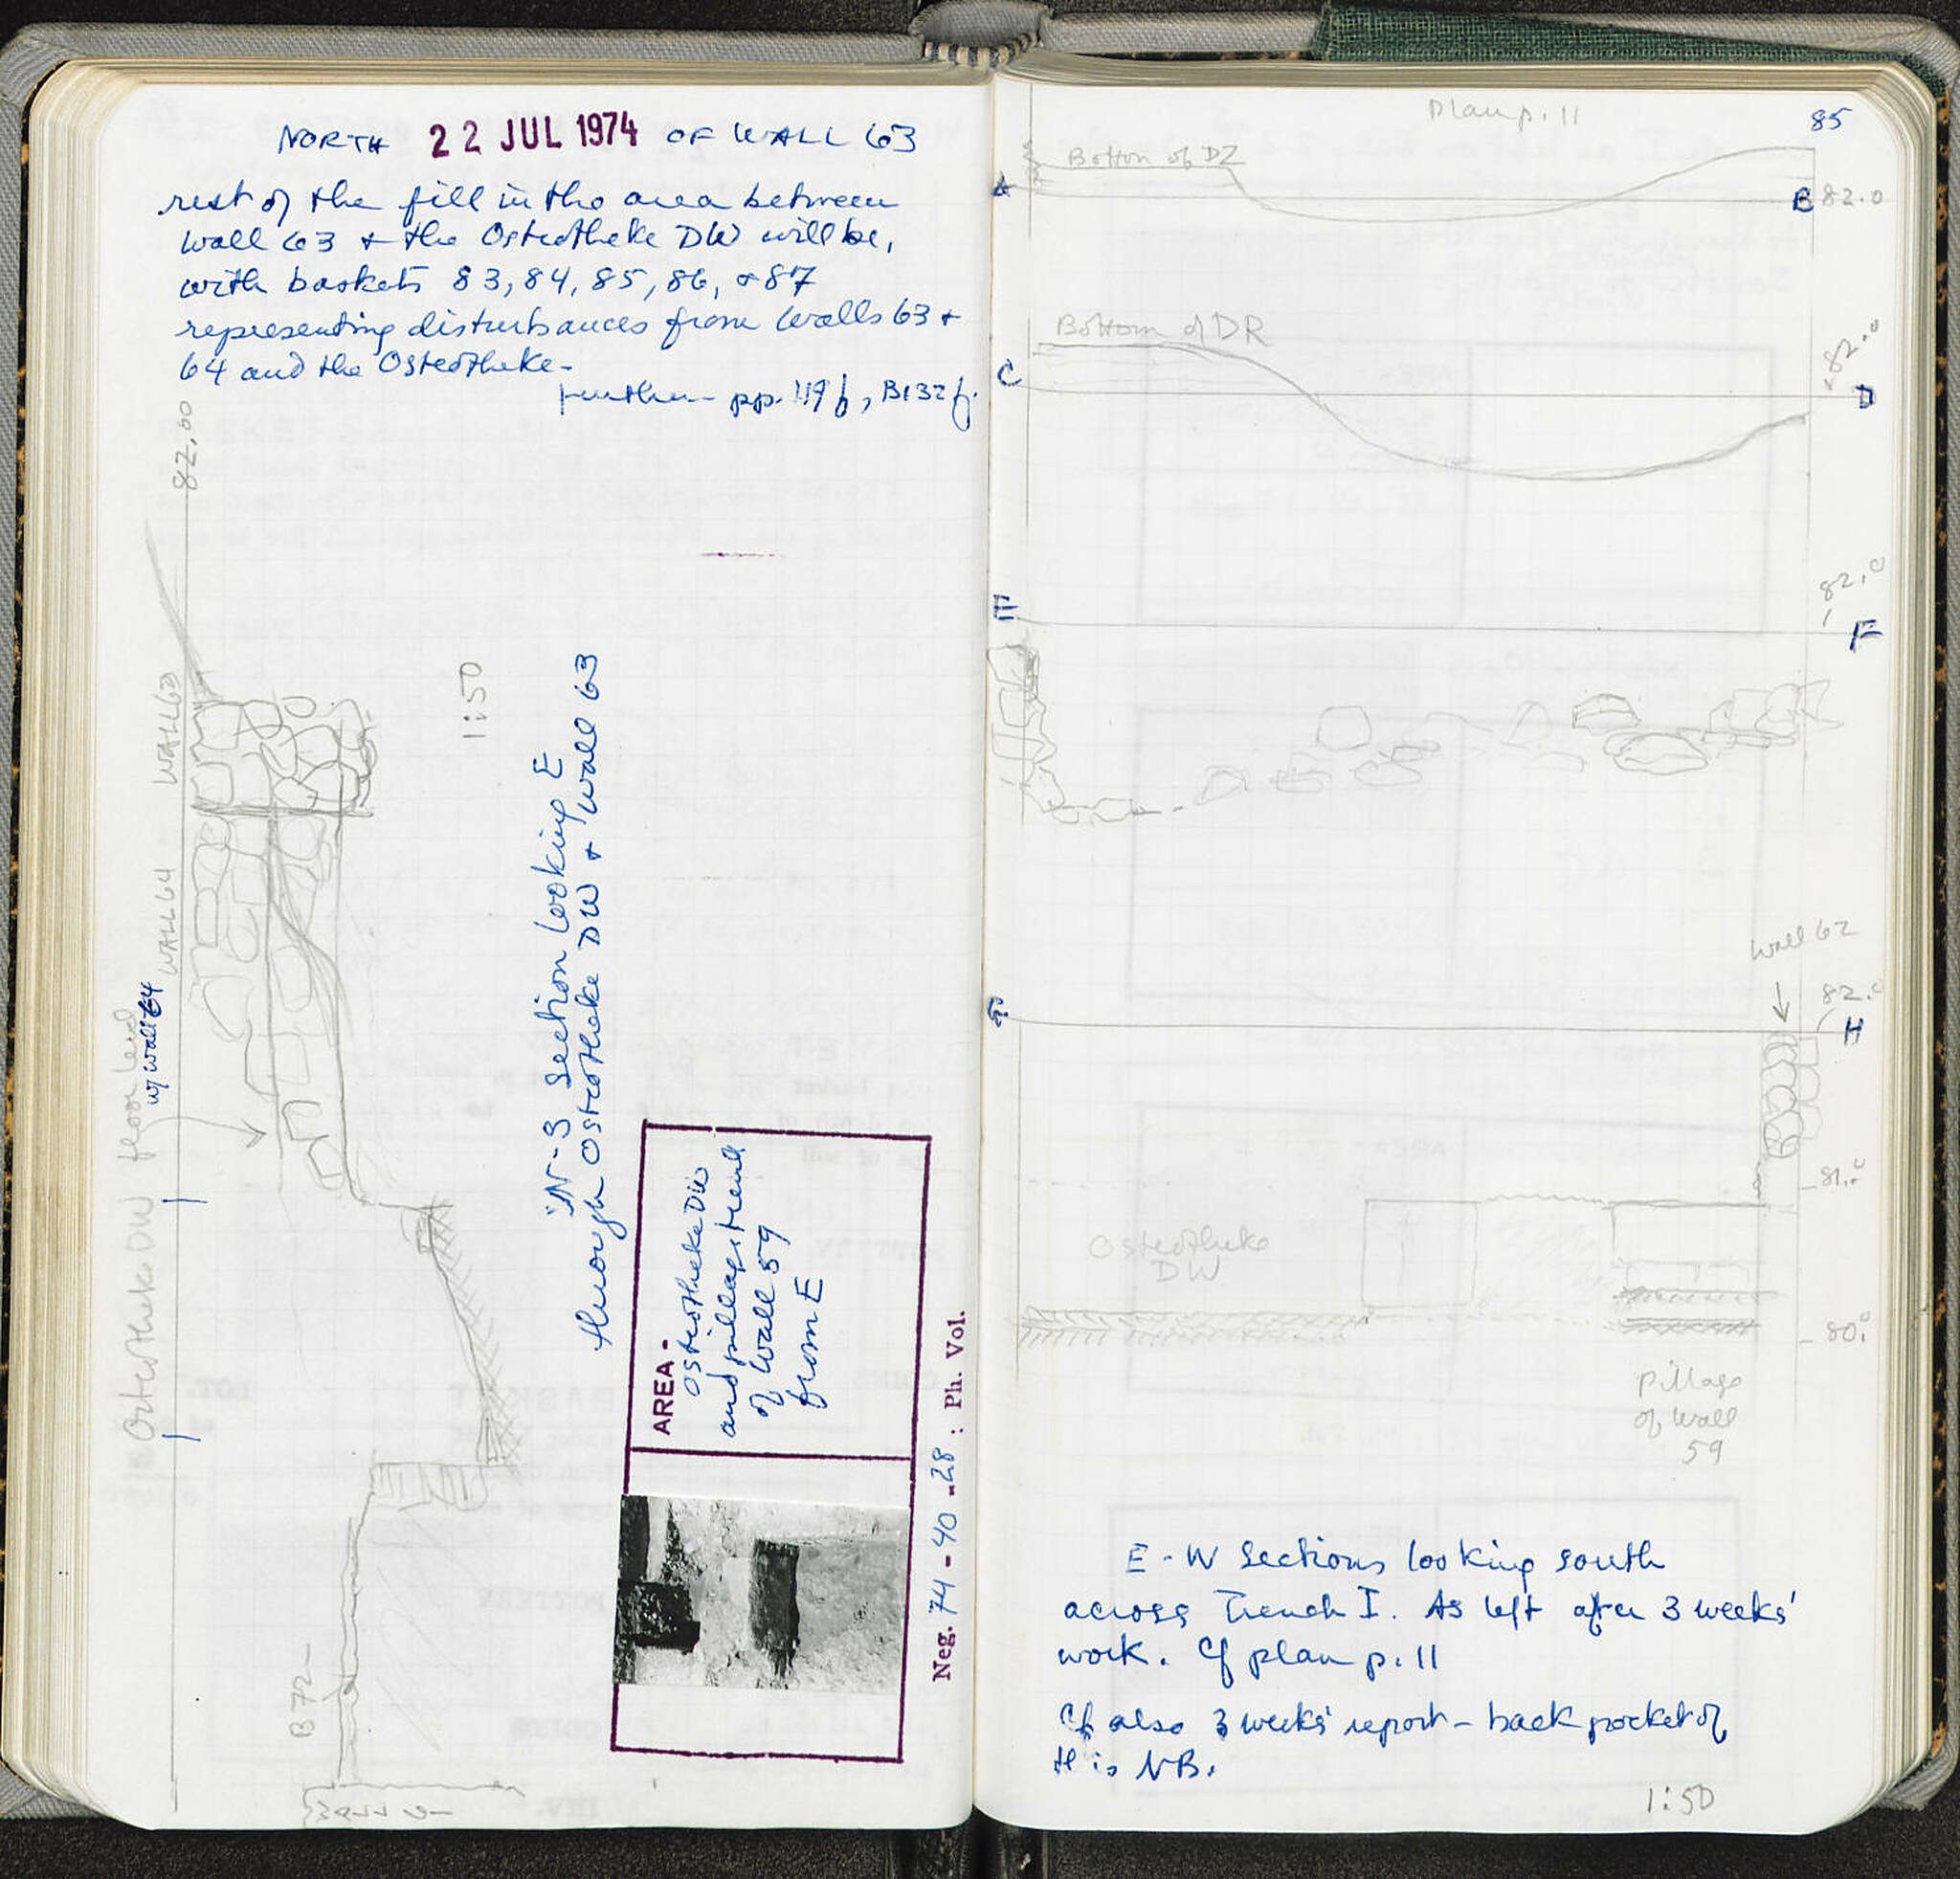 NORTH 22 JUL 1974 OF WALL 63
rest of the fill in the area between
Wall 63 + the Osteotheke DW will be,
with baskets 83, 84, 85, 86, + 87
representing disturbances from Walls 63 +
64 and the Osteotheke.
further pp. 119 f, B132 f.
82.00
WALL 63
WALL 64
w/ wall 64
floor level
Osteotheke DW
1:50
N-S Section looking E
through Osteotheke DW + Wall 63
B 72
AREA-
Osteotheke DW
and pillage trench
of Wall 59
from E
Neg. 74-40-28 : Ph. Vol.
Plan p. 11
85
Bottom of DZ
A
B
82.0
Bottom of DR
82.0
C
D
82.0
E
F
Wall 62
82.0
G
H
81.0
Osteotheke
DW
80.
Pillage
of Wall
59
E-W Sections looking south
across Trench I. As left after 3 weeks'
work. Cf plan p. 11
Cf also 3 weeks' report - back pocket of
this NB.
1:50